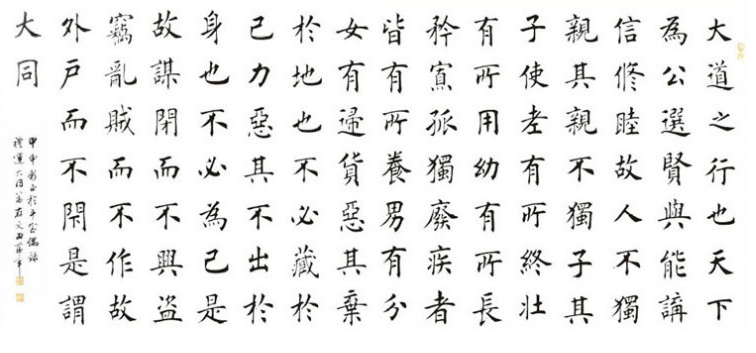 大道之行也天下
為公選賢與能講
信修睦故人不獨
親其親不獨子其
子使老有所終壯
有所用幼有所長
矜寡孤獨廢疾者
皆有所養男有分
女有歸貨惡其棄
於地也不必藏於
己力惡其不出於
身也不必為己是
故謀閉而不興盜
竊亂賊而不作故
外戶而不閉是謂
大同
甲申
禮運大同篇